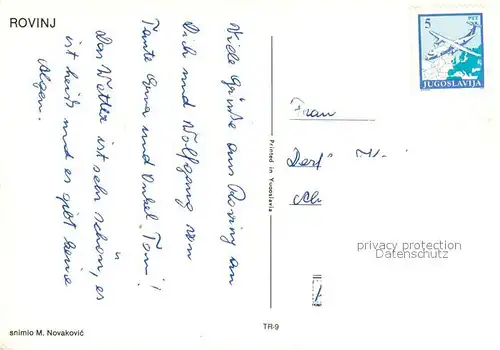 ROVINJ
Viele Grüße aus Roviny an
Dich und Wolfgang von
Tante Erna und Onkel Toni!
Das Wetter ist sehr schön, es
ist heiß und es gibt keine
Algen.
snimio M. Novaković
Printed in Yugoslavia
TR-9
5 PTT
JUGOSLAVIJA
Frau
privacy protection
Datenschutz